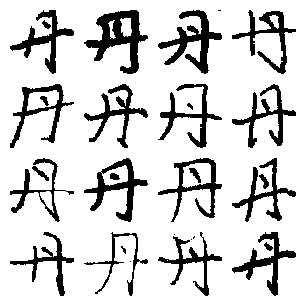 丹丹丹丹
丹丹丹丹
丹丹丹丹
丹丹丹丹